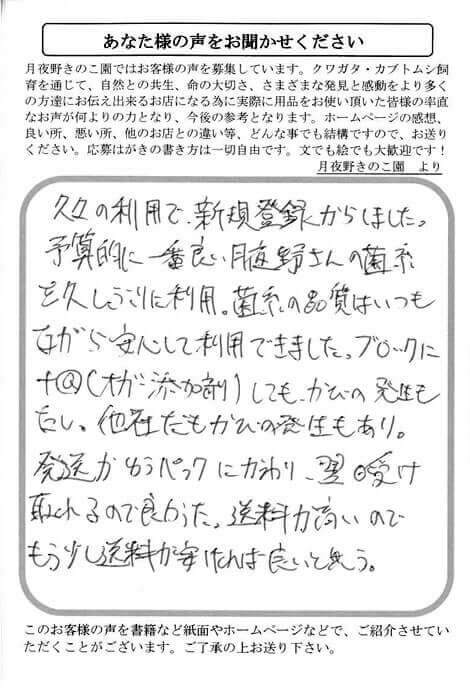 あなた様の声をお聞かせください
月夜野きのこ園ではお客様の声を募集しています。クワガタ・カブトムシ飼
育を通じて、自然との共生、命の大切さ、さまざまな発見と感動をより多く
の方達にお伝え出来るお店になる為に実際に用品をお使い頂いた皆様の率直
なお声が何よりの力となり、今後の参考となります。ホームページの感想、
良い所、悪い所、他のお店との違い等、どんな事でも結構ですので、お送り
ください。応募はがきの書き方は一切自由です。文でも絵でも大歓迎です！
月夜野きのこ園　より
久々の利用で、新規登録からしました。
予算的に一番良い月夜野さんの菌糸
を久しぶりに利用。菌糸の品質はいつも
ながら安心して利用できました。ブロックに
+@(オガ添加剤)しても、かびの発生も
ない。他社だとかびの発生もあり。
発送がゆうパックにかわり、翌日受け
取れるので良かった。送料が高いので
もう少し送料が安ければ良いと思う。
このお客様の声を書籍など紙面やホームページなどで、ご紹介させてい
ただくことがございます。ご了承の上お送り下さい。